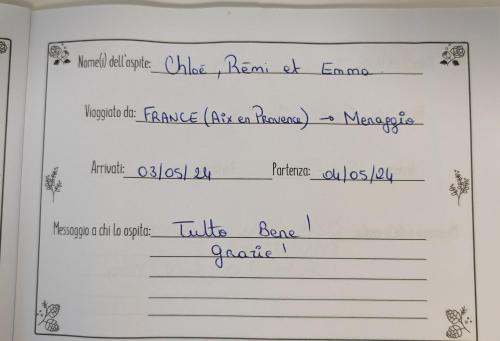 Nome(i) dell'ospite: Chloé, Rémi et Emma
Viaggiato da: FRANCE (Aix en Provence) → Menaggio
Arrivati: 03/05/24 Partenza: 04/05/24
Messaggio a chi lo ospita: Tutto Bene!
grazie!